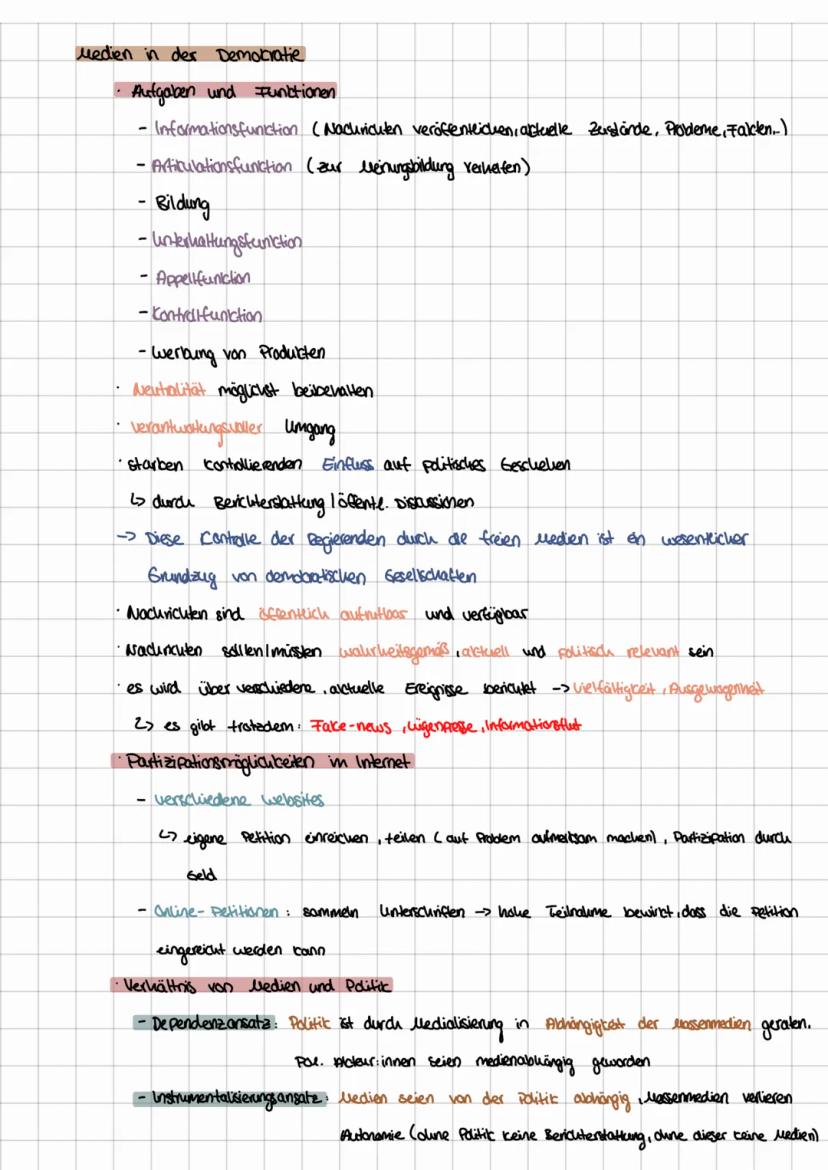 Medien in der Demokratie
· Aufgaben und Funktionen
- Informationsfunction (Nachrichten veröffentlichen, aktuelle Zustände, Probleme, Fakten..)
- Artikulationsfunction (zur Meinungsbildung verhelfen)
- Bildung
- Unterhaltungsfunction
- Appellfunction
- Kontrollfunction
- Werbung von Produkten
· Neutralität möglichst beibehalten
· verantwortungsvoller Umgang
· starken kontrollierenden Einfluss auf politisches Geschehen
↳ durch Berichterstattung / öffentl. Discussionen
-> Diese Controlle der Regierenden durch die freien Medien ist ein wesentlicher
Grundzug von demokratischen Gesellschaften
· Nachrichten sind öffentlich aufrufbar und verfügbar
· Nachrichten sollen/müssten wahrheitsgemäß, aktuell und politisch relevant sein
· es wird über verschiedene, aktuelle Ereignisse berichtet -> Vielfältigkeit, Ausgewogenheit
↳ es gibt trotzdem: Fake-news, Lügenpresse, Informationsflut
· Partizipationsmöglichkeiten im Internet
- verschiedene Websites
↳ eigene Petition einreichen, teilen (auf Problem aufmerksam machen), Partizipation durch
Geld
- Online-Petitionen: sammeln Unterschriften -> hohe Teilnahme bewirkt, dass die Petition
eingereicht werden kann
· Verhältnis von Medien und Politik
- Dependenzansatz: Politik ist durch Medialisierung in Abhängigkeit der Massenmedien geraten.
Pol. Akteur:innen seien medienabhängig geworden
- Instrumentalisierungsansatz: Medien seien von der Politik abhängig, Massenmedien verlieren
Autonomie (ohne Politik keine Berichterstattung, ohne dieser keine Medien)